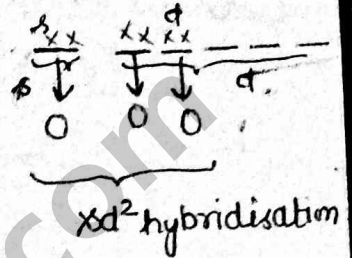 s d
xx xx xx
s d
O O O
sd² hybridisation
com